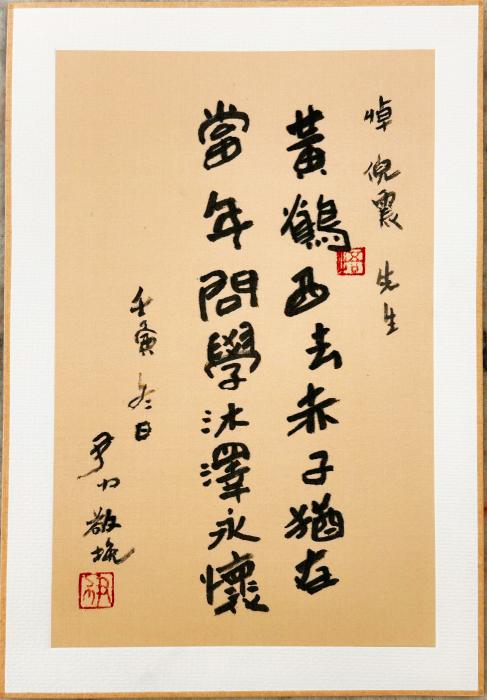 悼倪震先生
黃鶴西去赤子猶在
當年問學沐澤永懷
壬寅冬日
尹 敬挽